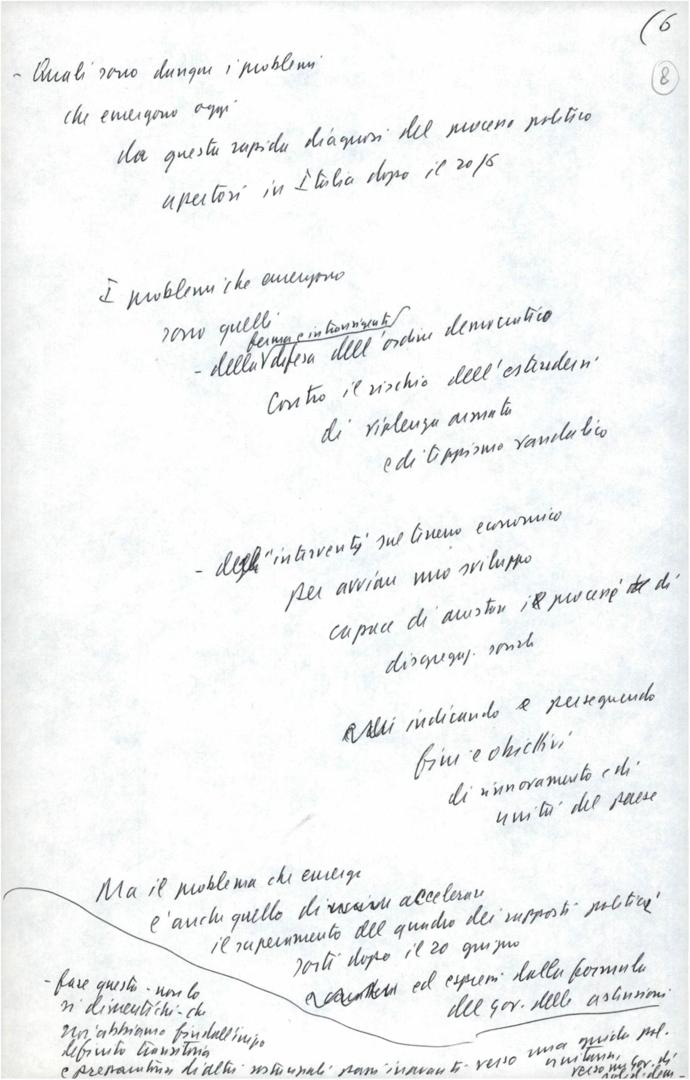 (6
8
- Quali sono dunque i problemi
che emergono oggi
da questa rapida diagnosi del processo politico
apertosi in Italia dopo il 20/6
I problemi che emergono
sono quelli
ferma e intransigente
- della difesa dell'ordine democratico
contro il rischio dell'estendersi
di violenza armata
e di teppismo vandalico
- degli interventi sul terreno economico
per avviare uno sviluppo
capace di arrestare i processi di
disgregaz. sociale
indicando e perseguendo
fini e obiettivi
di rinnovamento e di
unità del paese
Ma il problema che emerge
è anche quello di accelerare
il superamento del quadro dei rapporti politici
sorti dopo il 20 giugno
ed espressi dalla formula
del gov. delle astensioni
- fase questa - non lo
si dimentichi - che
noi abbiamo fin dall'inizio
definito transitoria
e preparatoria di altri sostanziali passi in avanti - verso una guida pol.
unitaria,
verso un gov. di
solid. dem.